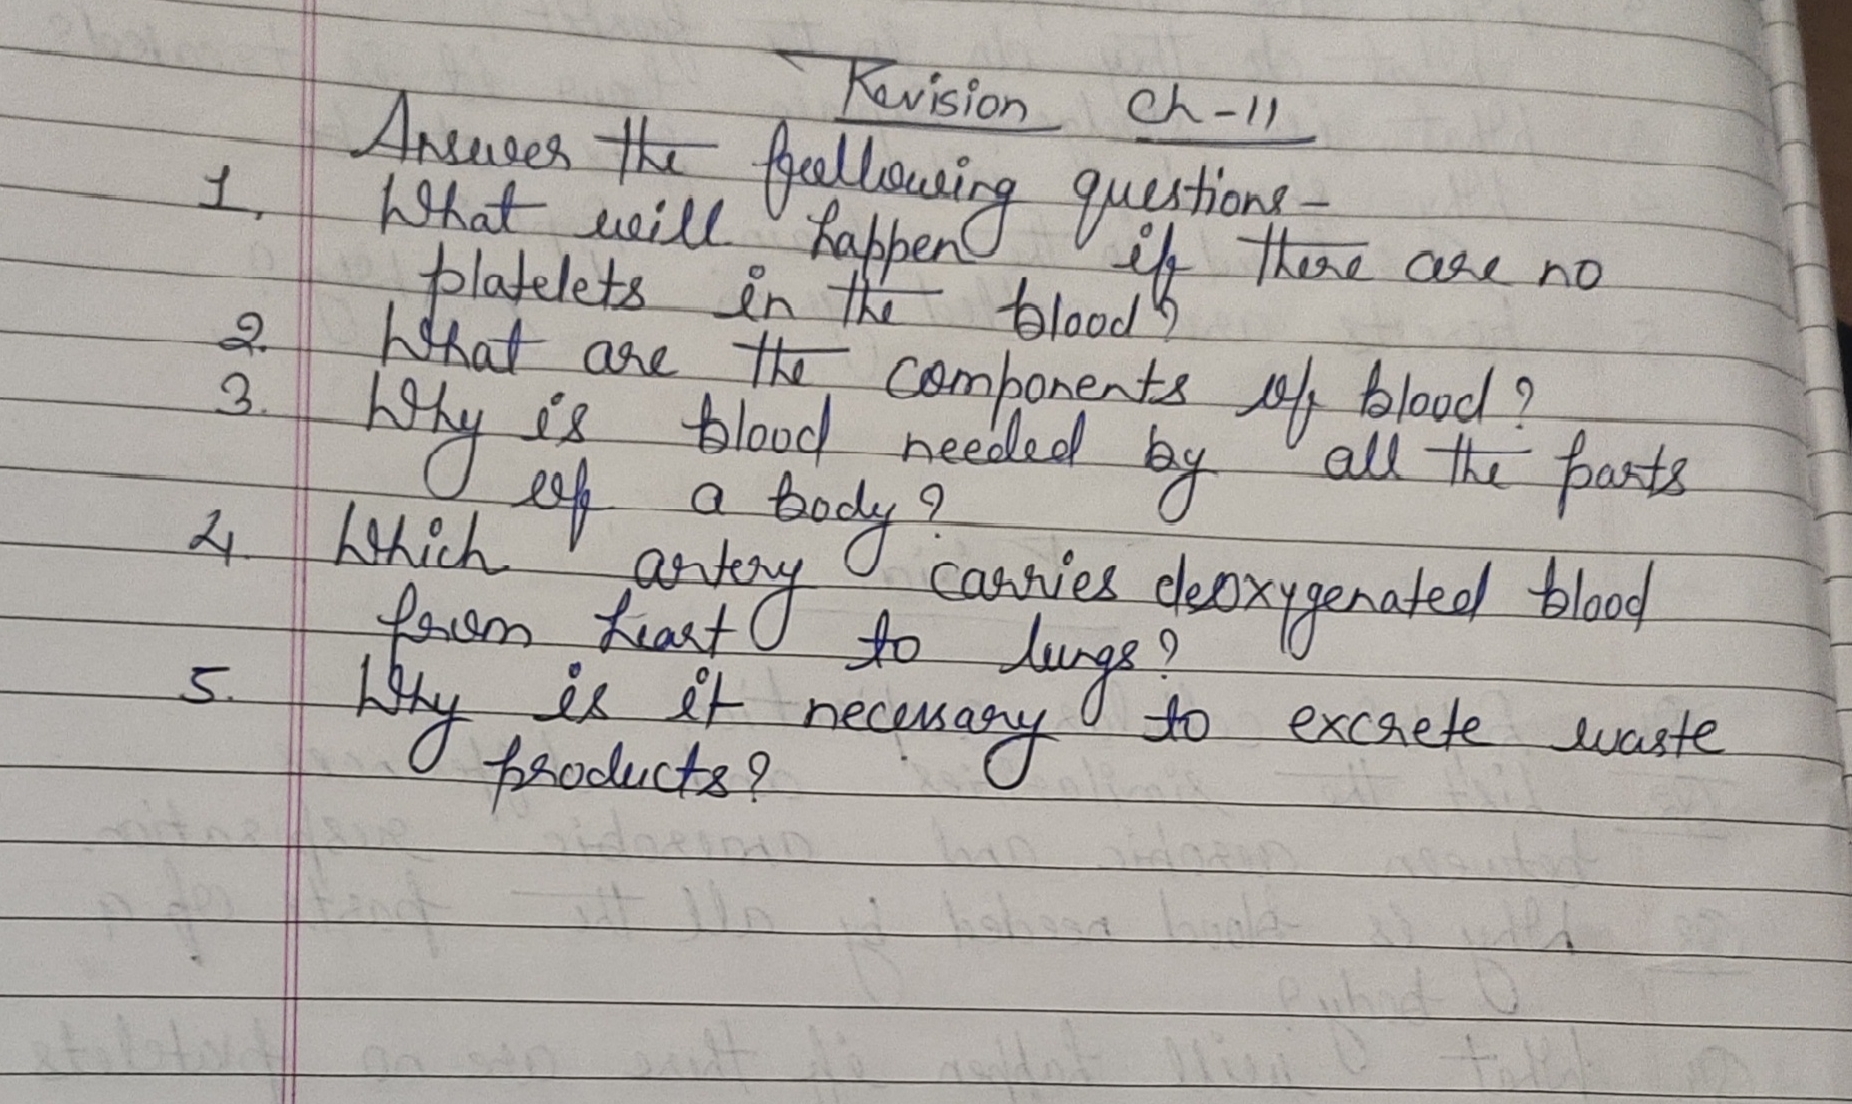 Revision Ch-11
Answer the following questions-
1. What will happen if there are no
platelets in the blood?
2. What are the components of blood?
3. Why is blood needed by all the parts
of a body?
4. Which artery carries deoxygenated blood
from heart to lungs?
5. Why is it necessary to excrete waste
products?